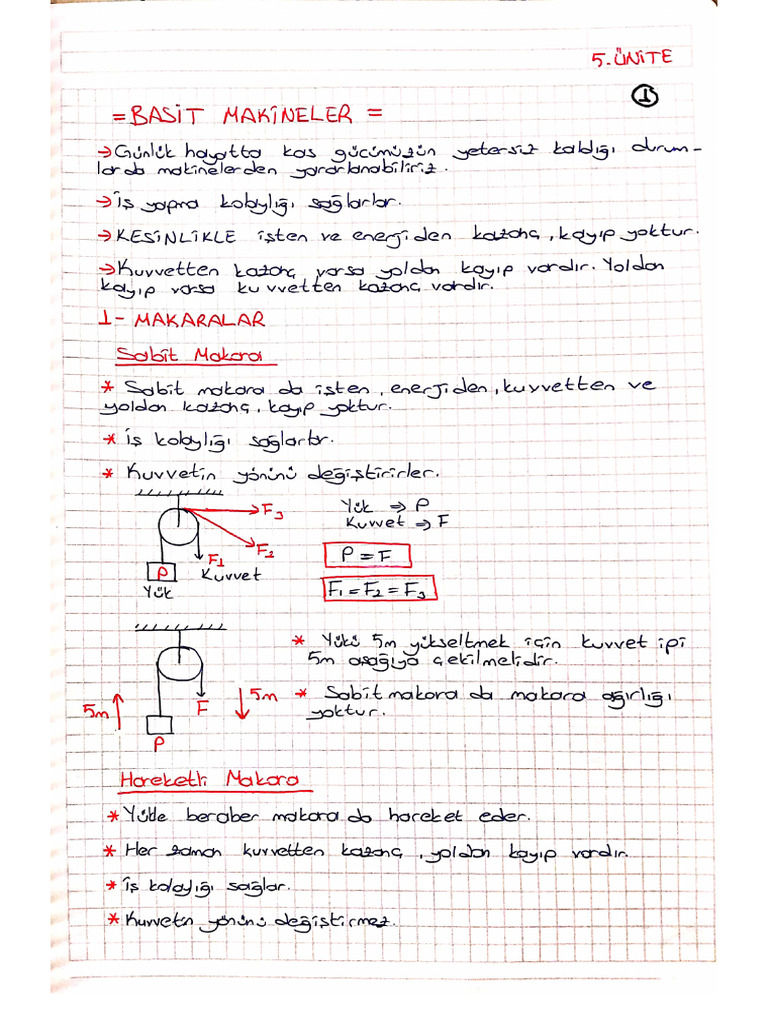 5.ÜNİTE
1
=BASİT MAKİNELER =
→Günlük hayatta kas gücümüzün yetersiz kaldığı durum-
larda makinelerden yararlanabiliriz.
→İş yapma kolaylığı sağlarlar.
→KESİNLİKLE işten ve enerjiden kazanç, kayıp yoktur.
→Kuvvetten kazanç varsa yoldan kayıp vardır. Yoldan
kayıp varsa kuvvetten kazanç vardır.
1- MAKARALAR
Sabit Makara
* Sabit makara da işten, enerjiden, kuvvetten ve
yoldan kazanç, kayıp yoktur.
* İş kolaylığı sağlarlar.
* Kuvvetin yönünü değiştirirler.
F3
F2
F1
Kuvvet
P
Yük
Yük ⇒ P
Kuvvet ⇒ F
P = F
F1 = F2 = F3
* Yükü 5m yükseltmek için kuvvet ipi
5m aşağıya çekilmelidir.
* Sabit makara da makara ağırlığı
yoktur.
5m
F
5m
P
Hareketli Makara
* Yükle beraber makara da hareket eder.
* Her zaman kuvvetten kazanç, yoldan kayıp vardır.
* İş kolaylığı sağlar.
* Kuvvetin yönünü değiştirmez.